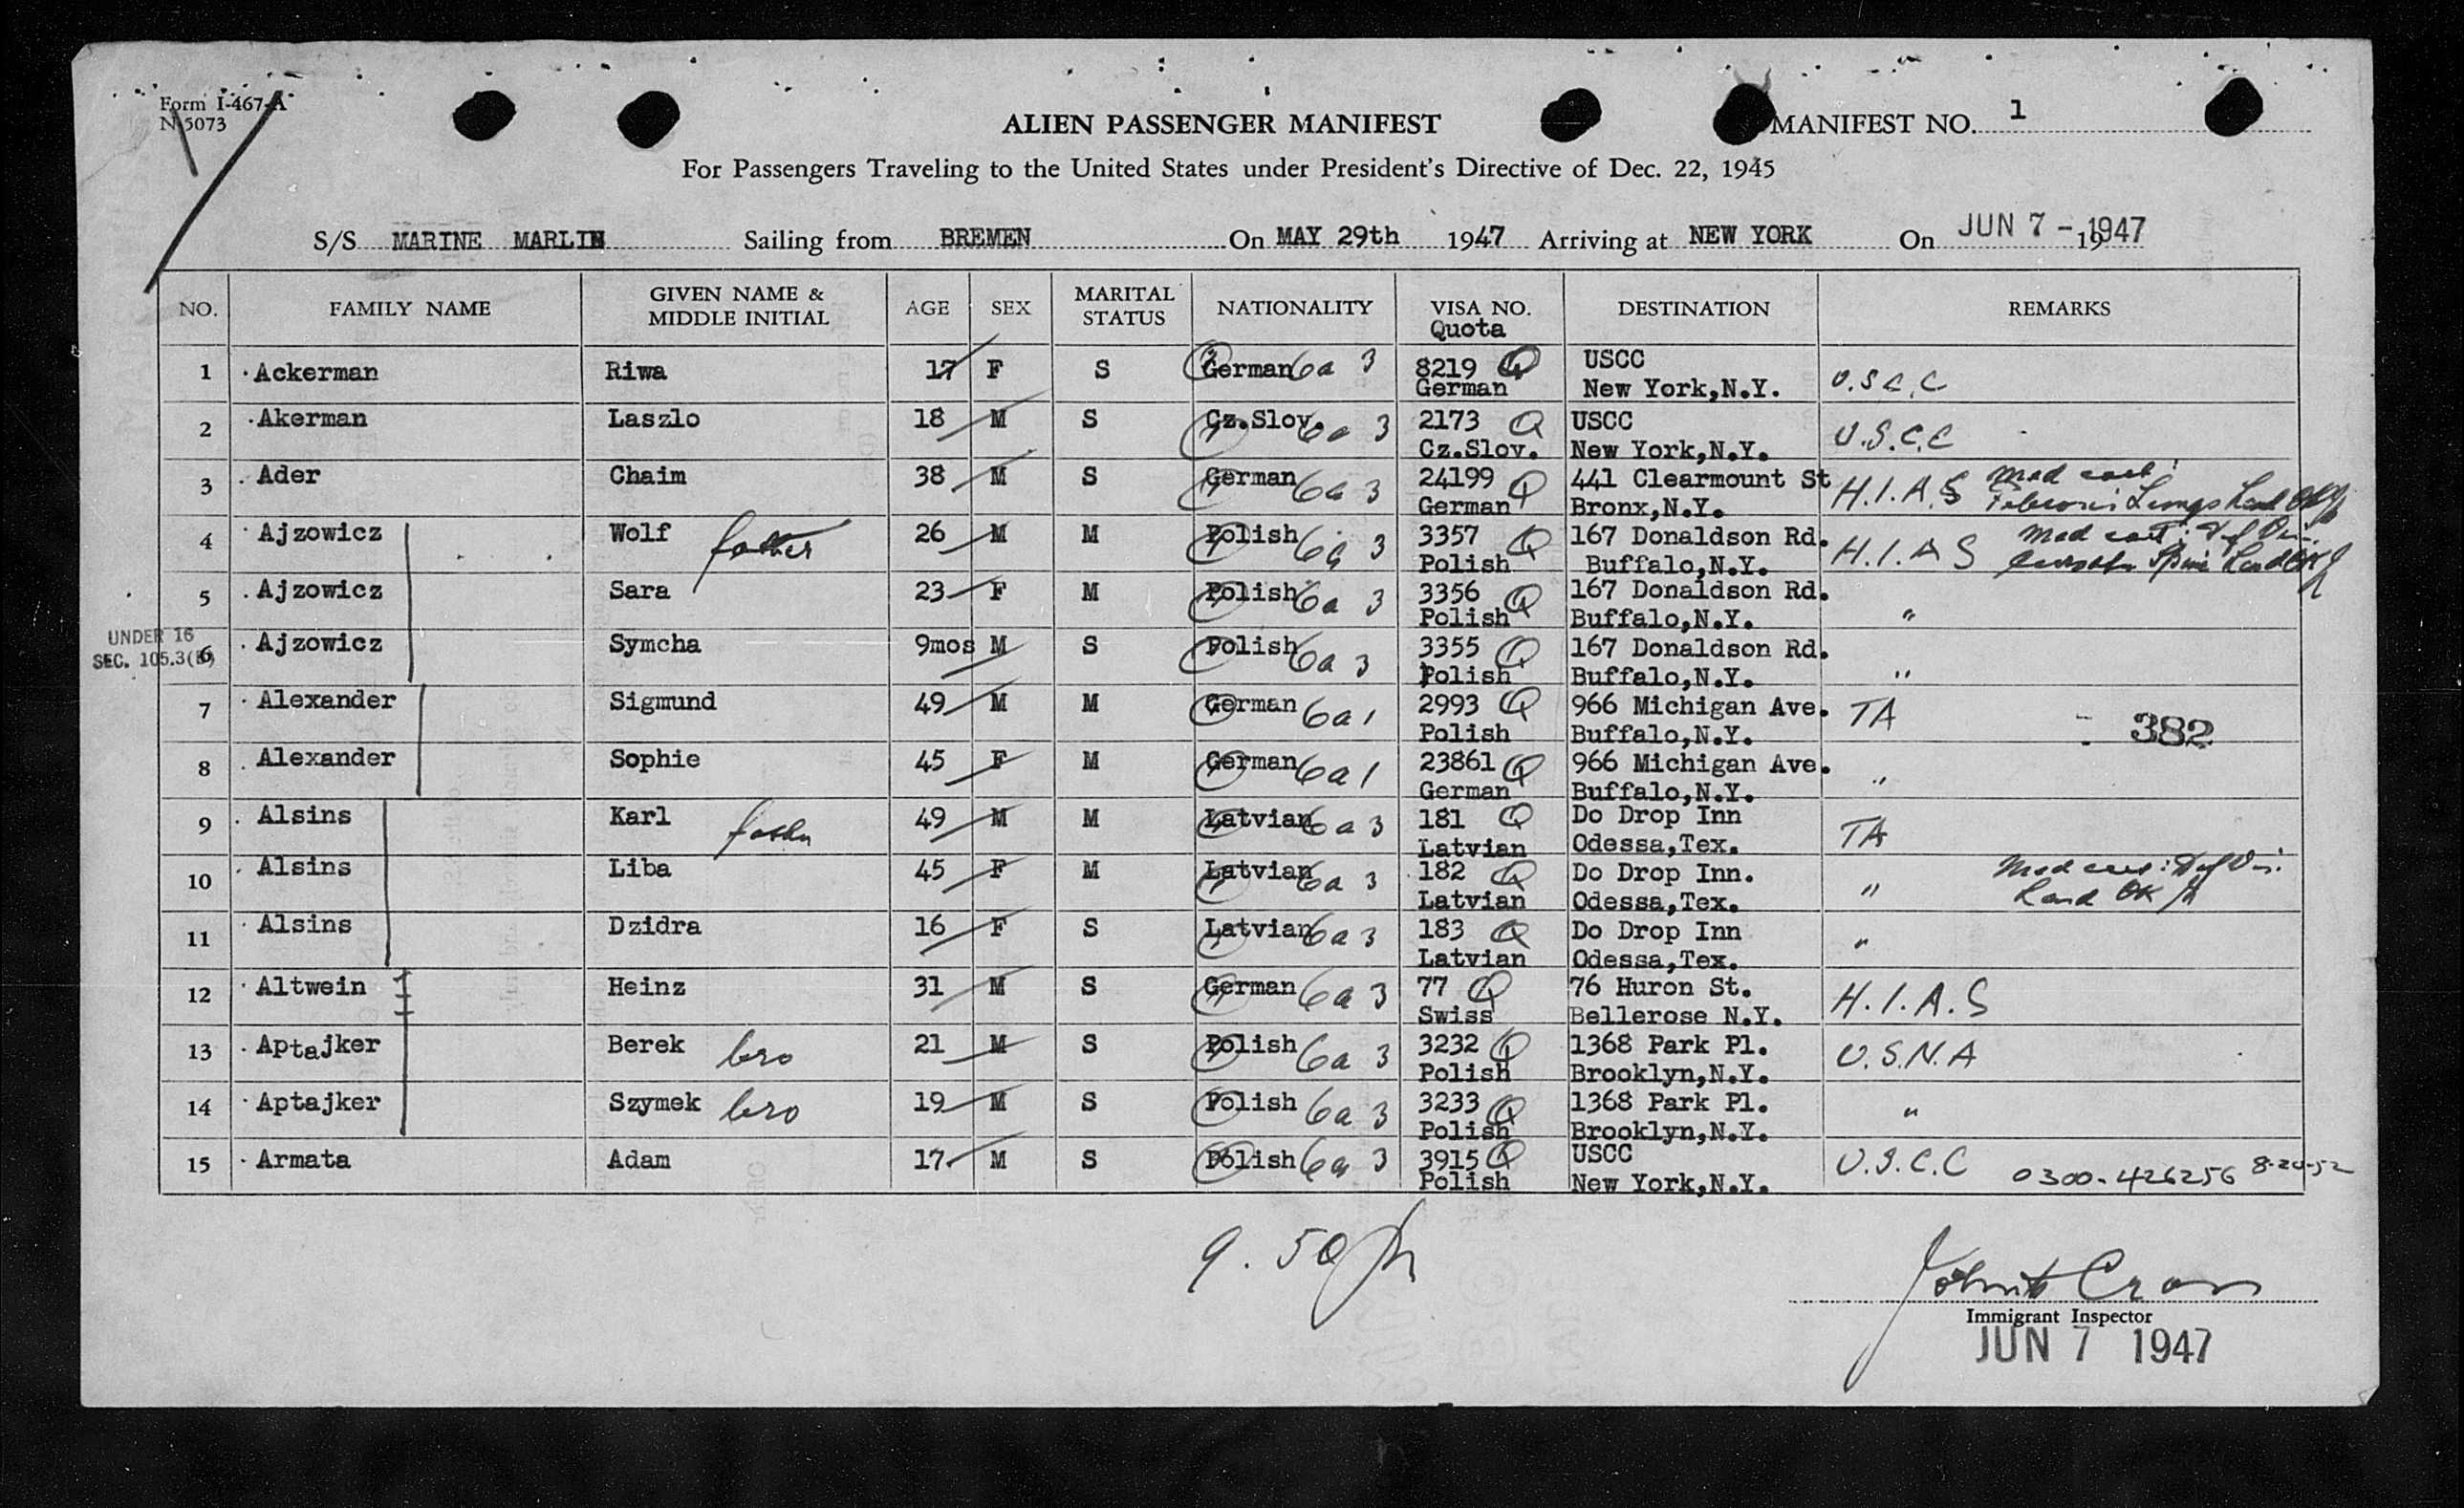 Form I-467-A
N-5073
ALIEN PASSENGER MANIFEST
MANIFEST NO. 1
For Passengers Traveling to the United States under President's Directive of Dec. 22, 1945
S/S MARINE MARLIN Sailing from BREMEN On MAY 29th 1947 Arriving at NEW YORK On JUN 7 - 1947
NO. FAMILY NAME GIVEN NAME & MIDDLE INITIAL AGE SEX MARITAL STATUS NATIONALITY VISA NO. Quota DESTINATION REMARKS
1 Ackerman Riwa 17 F S German 6a 3 8219 Q German USCC New York,N.Y. U.S.C.C
2 Akerman Laszlo 18 M S Cz.Slov. 6a 3 2173 Q Cz.Slov. USCC New York,N.Y. U.S.C.C
3 Ader Chaim 38 M S German 6a 3 24199 Q German 441 Clearmount St Bronx,N.Y. H.I.A.S Med cert Lungs Land
4 Ajzowicz Wolf father 26 M M Polish 6a 3 3357 Q Polish 167 Donaldson Rd. Buffalo,N.Y. H.I.A.S Med cert: Spine Land OK
5 Ajzowicz Sara 23 F M Polish 6a 3 3356 Q Polish 167 Donaldson Rd. Buffalo,N.Y. "
UNDER 16
SEC. 105.3(B)
6 Ajzowicz Symcha 9mos M S Polish 6a 3 3355 Q Polish 167 Donaldson Rd. Buffalo,N.Y. "
7 Alexander Sigmund 49 M M German 6a 1 2993 Q Polish 966 Michigan Ave. Buffalo,N.Y. TA 382
8 Alexander Sophie 45 F M German 6a 1 23861 Q German 966 Michigan Ave. Buffalo,N.Y. "
9 Alsins Karl father 49 M M Latvian 6a 3 181 Q Latvian Do Drop Inn Odessa,Tex. TA
10 Alsins Liba 45 F M Latvian 6a 3 182 Q Latvian Do Drop Inn. Odessa,Tex. " Med cert: Def Vis. Land OK
11 Alsins Dzidra 16 F S Latvian 6a 3 183 Q Latvian Do Drop Inn Odessa,Tex. "
12 Altwein Heinz 31 M S German 6a 3 77 Q Swiss 76 Huron St. Bellerose N.Y. H.I.A.S
13 Aptajker Berek bro 21 M S Polish 6a 3 3232 Q Polish 1368 Park Pl. Brooklyn,N.Y. U.S.N.A
14 Aptajker Szymek bro 19 M S Polish 6a 3 3233 Q Polish 1368 Park Pl. Brooklyn,N.Y. "
15 Armata Adam 17 M S Polish 6a 3 3915 Q Polish USCC New York,N.Y. U.S.C.C 0300-426256
9.50
Immigrant Inspector
JUN 7 1947